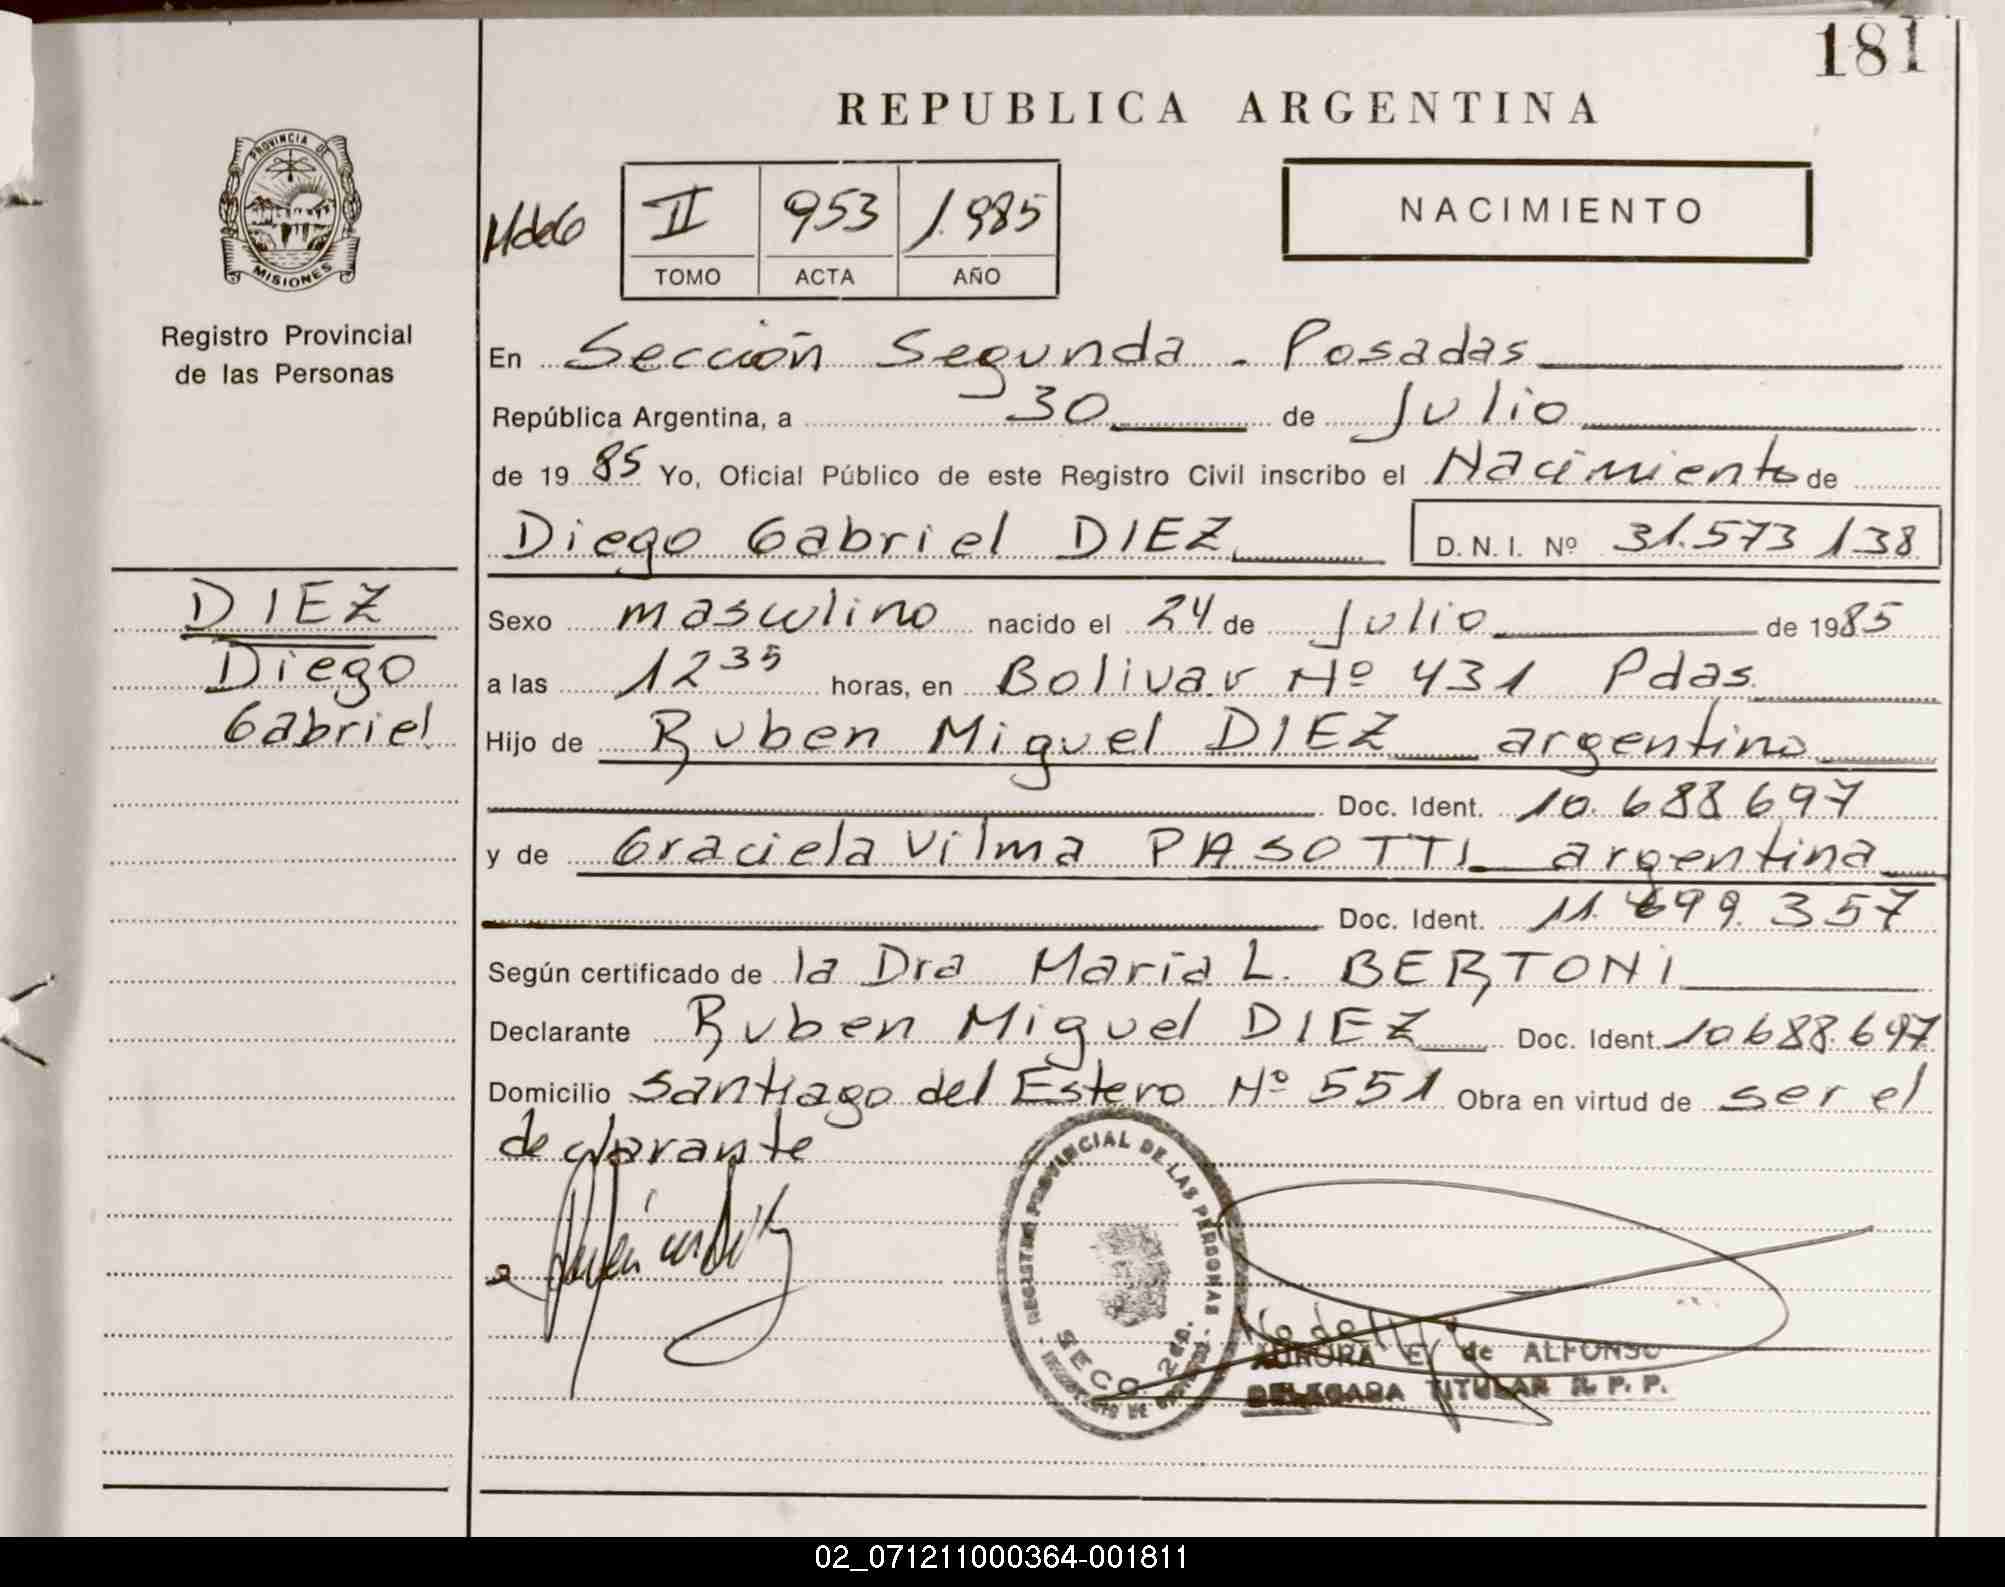 181
REPUBLICA ARGENTINA
PROVINCIA DE
MISIONES
Registro Provincial
de las Personas
II 953 1.985
TOMO ACTA AÑO
NACIMIENTO
En Sección Segunda - Posadas
República Argentina, a 30 de Julio
de 1985 Yo, Oficial Público de este Registro Civil inscribo el Nacimiento de
Diego Gabriel DIEZ D. N. I. Nº 31.573 138
DIEZ
Diego
Gabriel
Sexo masculino nacido el 24 de Julio de 1985
a las 12 35 horas, en Bolivar Nº 431 Pdas.
Hijo de Ruben Miguel DIEZ argentino
Doc. Ident. 10.688.697
y de Graciela Vilma PASOTTI argentina
Doc. Ident. 11.699.357
Según certificado de la Dra Maria L. BERTONI
Declarante Ruben Miguel DIEZ Doc. Ident. 10.688.697
Domicilio Santiago del Estero Nº 551 Obra en virtud de ser el
declarante
REGISTRO PROVINCIAL DE LAS PERSONAS
SECC. 2da.
AURORA E. de ALFONSO
DELEGADA TITULAR R. P. P.
02_071211000364-001811